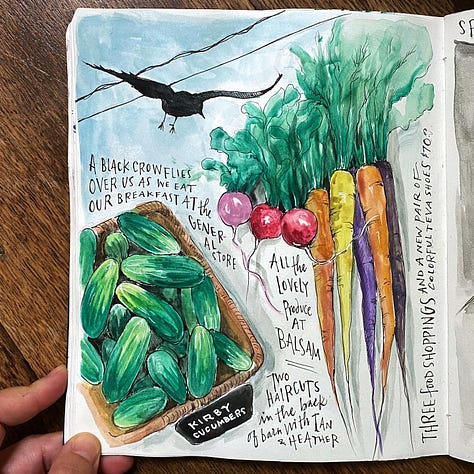 A BLACK CROW FLIES
OVER US AS WE EAT
OUR BREAKFAST AT the
GENER-
AL
STORE
ALL the
LOVELY
PRODUCE
AT
BALSAM
TWO
HAIRCUTS
in the back
of barn WITH IAN
& HEATHER
KIRBY
CUCUMBERS
THREE FOOD SHOPPINGS AND A NEW PAIR OF
COLORFUL TEVA SHOES
SP